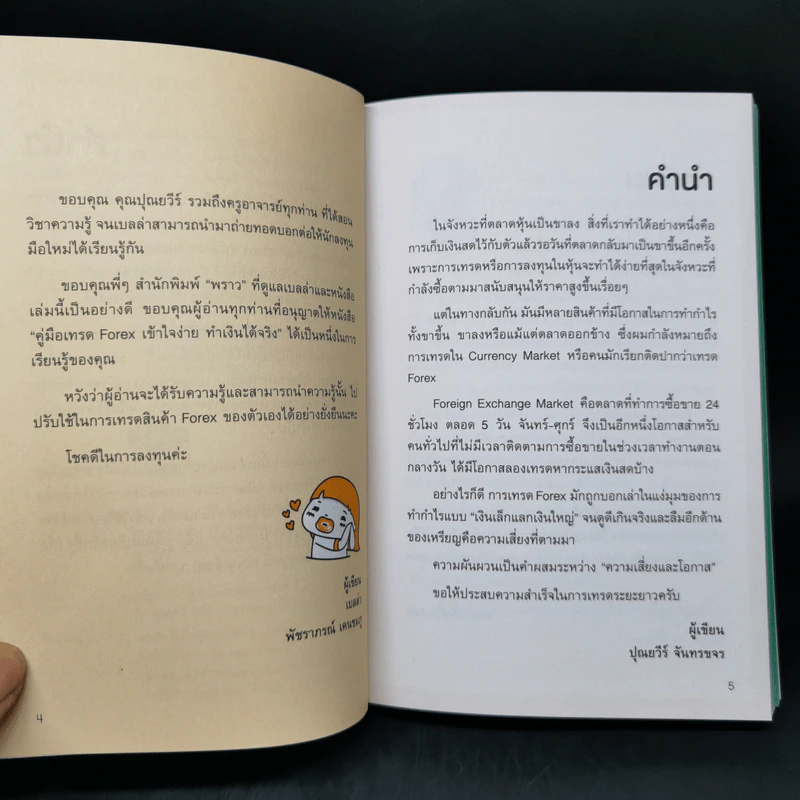 ขอบคุณ คุณปุณยวีร์ รวมถึงครูอาจารย์ทุกท่าน ที่ได้สอน
วิชาความรู้ จนเบลล่าสามารถนำมาถ่ายทอดบอกต่อให้นักลงทุน
มือใหม่ได้เรียนรู้กัน
ขอบคุณพี่ๆ สำนักพิมพ์ “พราว” ที่ดูแลเบลล่าและหนังสือ
เล่มนี้เป็นอย่างดี ขอบคุณผู้อ่านทุกท่านที่อนุญาตให้หนังสือ
“คู่มือเทรด Forex เข้าใจง่าย ทำเงินได้จริง” ได้เป็นหนึ่งในการ
เรียนรู้ของคุณ
หวังว่าผู้อ่านจะได้รับความรู้และสามารถนำความรู้นั้น ไป
ปรับใช้ในการเทรดสินค้า Forex ของตัวเองได้อย่างยั่งยืนนะคะ
โชคดีในการลงทุนค่ะ
ผู้เขียน
เบลล่า
พัชราภรณ์
4
คำนำ
ในจังหวะที่ตลาดหุ้นเป็นขาลง สิ่งที่เราทำได้อย่างหนึ่งคือ
การเก็บเงินสดไว้กับตัวแล้วรอวันที่ตลาดกลับมาเป็นขาขึ้นอีกครั้ง
เพราะการเทรดหรือการลงทุนในหุ้นจะทำได้ง่ายที่สุดในจังหวะที่
กำลังซื้อตามมาสนับสนุนให้ราคาสูงขึ้นเรื่อยๆ
แต่ในทางกลับกัน มันมีหลายสินค้าที่มีโอกาสในการทำกำไร
ทั้งขาขึ้น ขาลงหรือแม้แต่ตลาดออกข้าง ซึ่งผมกำลังหมายถึง
การเทรดใน Currency Market หรือคนมักเรียกติดปากว่าเทรด
Forex
Foreign Exchange Market คือตลาดที่ทำการซื้อขาย 24
ชั่วโมง ตลอด 5 วัน จันทร์-ศุกร์ จึงเป็นอีกหนึ่งโอกาสสำหรับ
คนทั่วไปที่ไม่มีเวลาติดตามการซื้อขายในช่วงเวลาทำงานตอน
กลางวัน ได้มีโอกาสลองเทรดหากระแสเงินสดบ้าง
อย่างไรก็ดี การเทรด Forex มักถูกบอกเล่าในแง่มุมของการ
ทำกำไรแบบ “เงินเล็กแลกเงินใหญ่” จนดูดีเกินจริงและลืมอีกด้าน
ของเหรียญคือความเสี่ยงที่ตามมา
ความผันผวนเป็นคำผสมระหว่าง “ความเสี่ยงและโอกาส”
ขอให้ประสบความสำเร็จในการเทรดระยะยาวครับ
ผู้เขียน
ปุณยวีร์ จันทรขจร
5